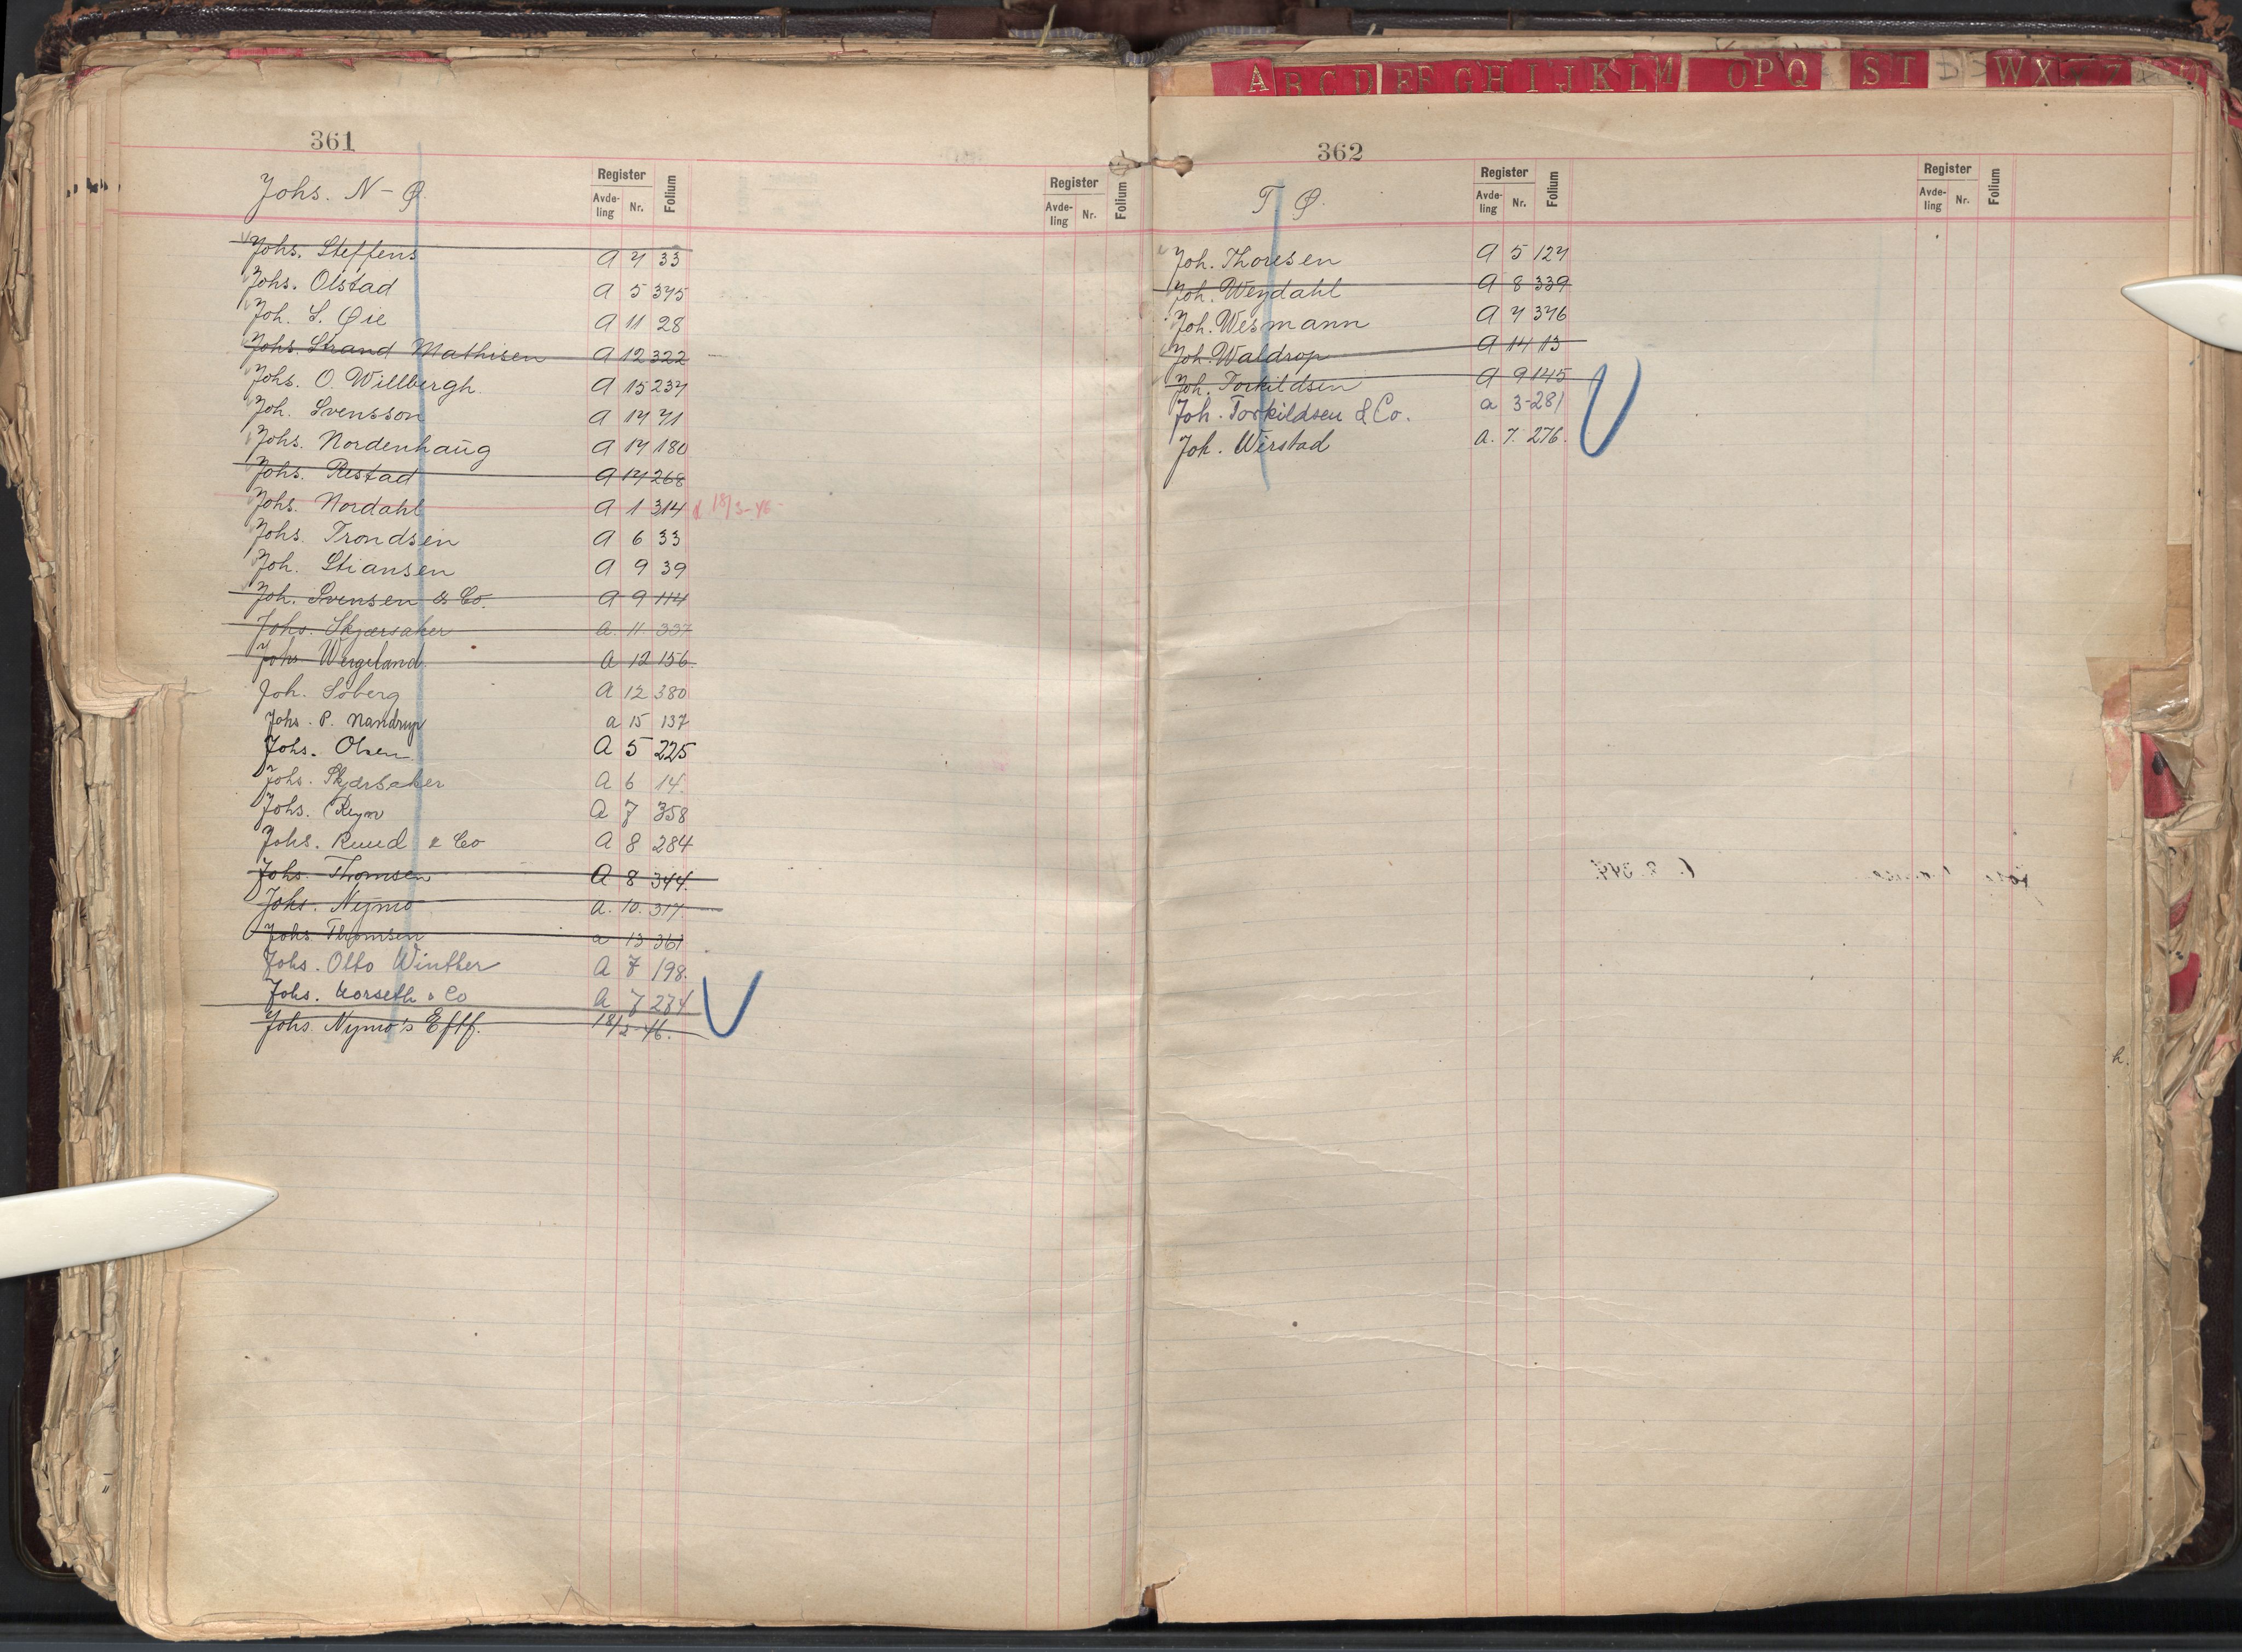 361
Johs. N-Ø.
Register
Avde-
ling
Nr.
Folium
Register
Avde-
ling
Nr.
Folium
Johs. Steffens A 7 33
Johs. Olstad A 5 375
Joh. S. Øie A 11 28
Johs. Strand Mathisen A 12 322
Johs. O. Willbergh. A 15 237
Joh. Svensson A 17 71
Johs. Nordenhaŭg A 17 180
Johs. Restad A 17 268
Johs. Nordahl A 1 314 18/3-46
Johs. Trondsen A 6 33
Joh. Stiansen A 9 39
Joh. Svensen & Co. A 9 114
Johs. Skjærsaker A. 11. 337
Johs. Wergeland A 12 156.
Joh. Soberg A 12 380
Johs. P. Nandrup a 15 137
Johs. Olsen A 5 225
Johs. Skjærsaker A 6 14.
Johs. Reyn A 7 358
Johs. Ruud & Co A 8 284
Johs. Thomsen A 8 344.
Johs. Nymo a. 10. 317.
Johs. Thomsen a 13 361
Johs. Otto Winther A 7 198.
Johs. Norseth & Co A 7 274
Johs. Nymo's Eftf. 18/3-46.
A B C D E F G H I J K L M O P Q S T W X
362
T Ø.
Register
Avde-
ling
Nr.
Folium
Register
Avde-
ling
Nr.
Folium
Joh. Thoresen A 5 127
Joh. Weydahl A 8 339
Joh. Wesmann A 7 376
Joh. Waldrop A 14 13
Joh. Torkildsen A 9 145
Joh. Torkildsen & Co. a 3-281
Joh. Wérstad A. 7. 276.
h.